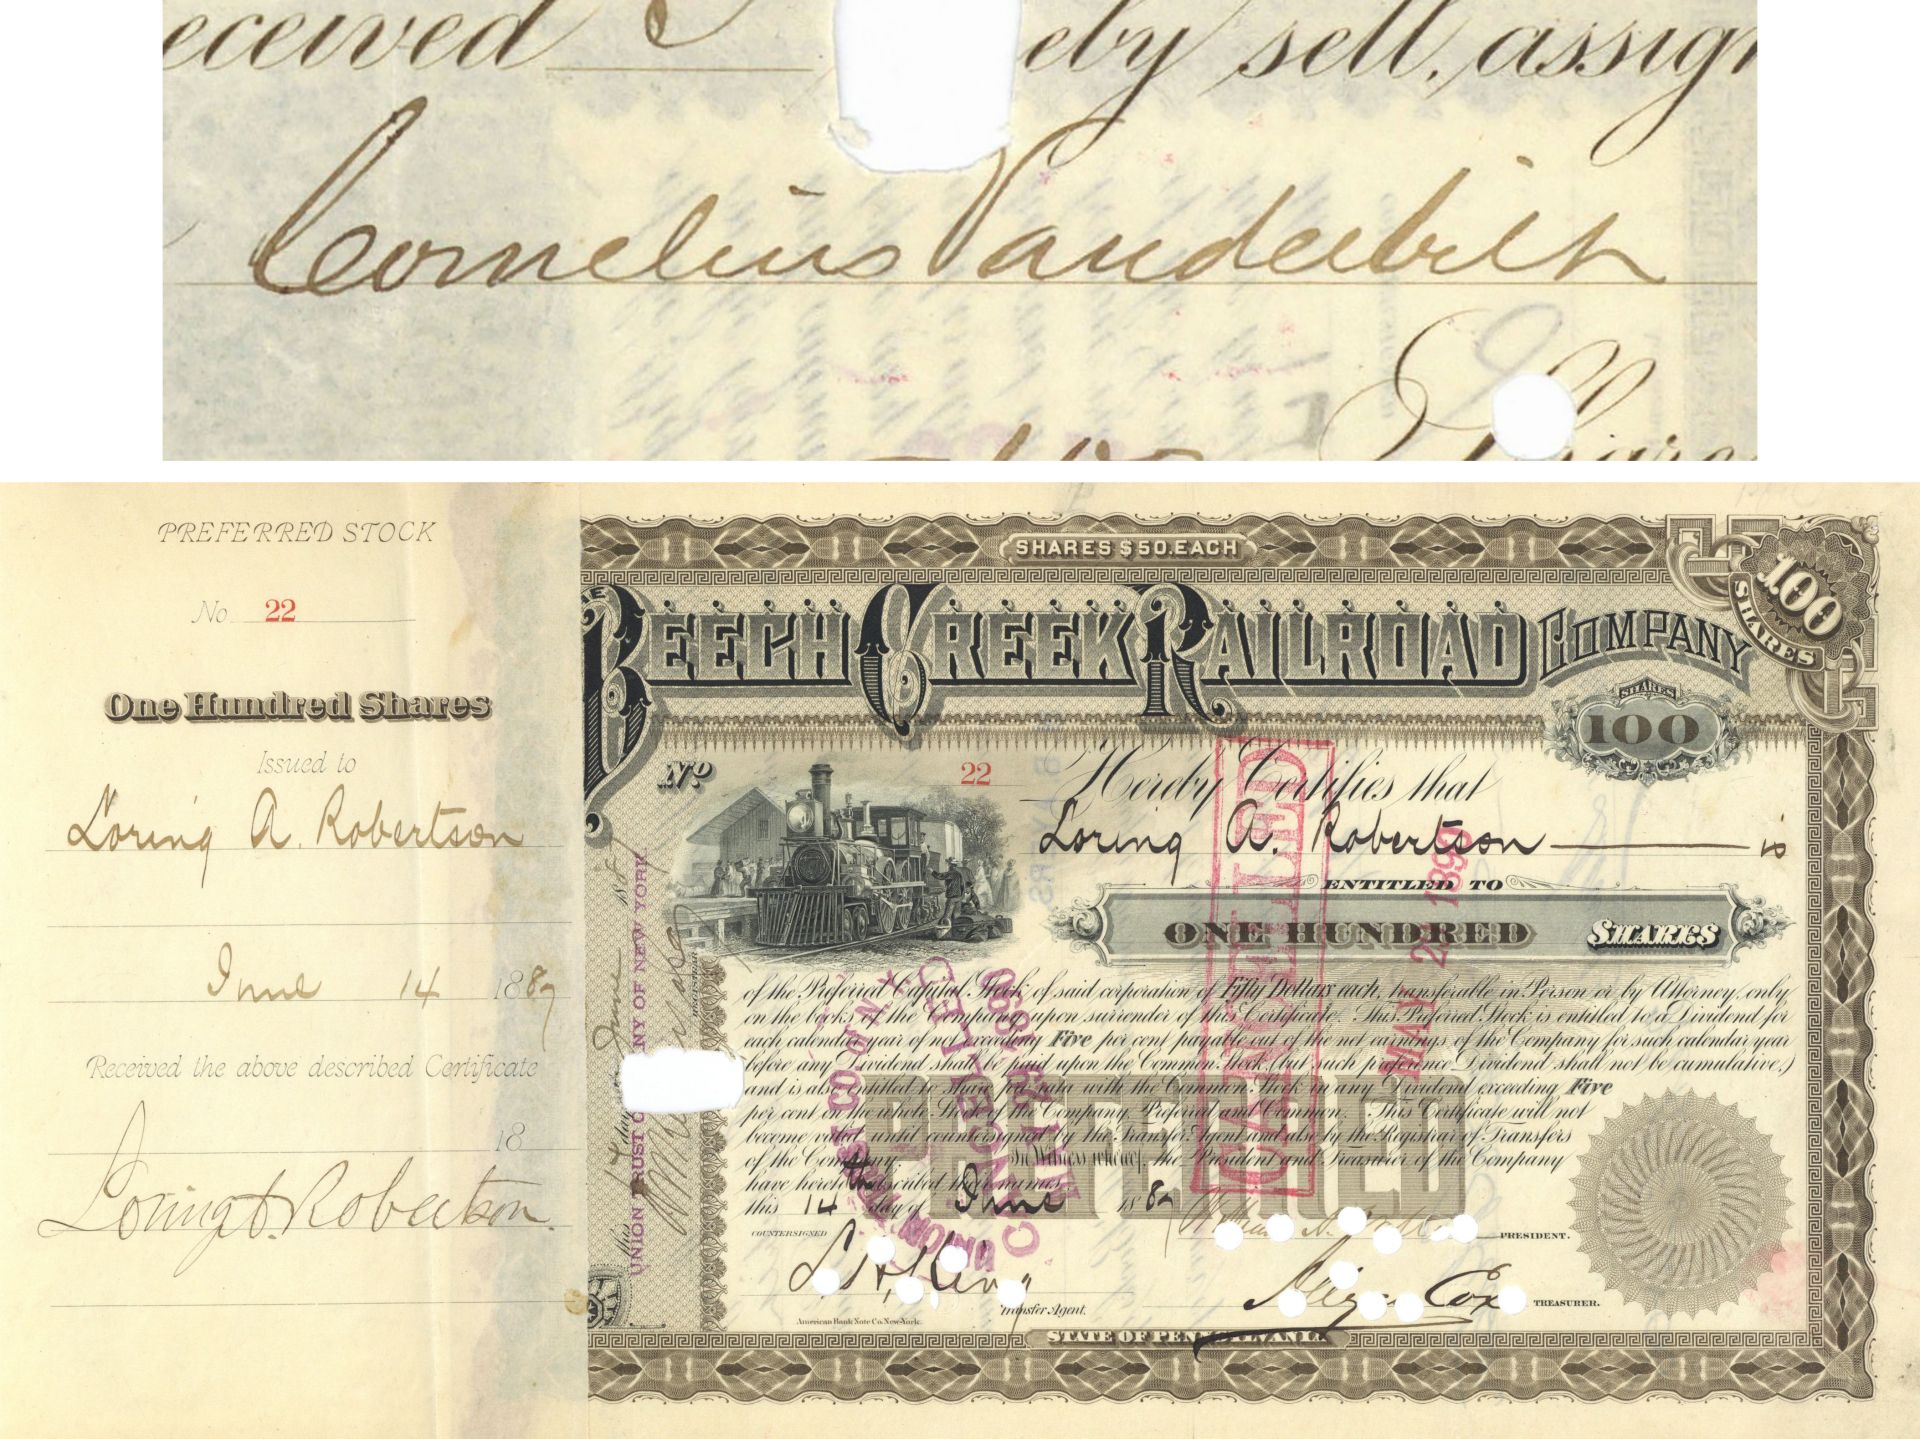 eceived eby sell, assign
Cornelius Vanderbilt
Share
PREFERRED STOCK
No. 22
One Hundred Shares
Issued to
Loring A. Robertson
June 14 1887
Received the above described Certificate
18
Loring A. Robertson
SHARES $50. EACH
100
SHARES
THE BEECH CREEK RAILROAD COMPANY
SHARES
100
No 22
Hereby Certifies that
Loring A. Robertson is
ENTITLED TO
ONE HUNDRED SHARES
of the Preferred Capital Stock of said corporation of Fifty Dollars each, transferable in Person or by Attorney, only
on the books of the Company upon surrender of this Certificate. This Preferred Stock is entitled to a Dividend for
each calendar year of not exceeding Five per cent payable out of the net earnings of the Company for such calendar year
before any Dividend shall be paid upon the Common Stock (but such preference Dividend shall not be cumulative)
and is also entitled to share pro rata with the Common Stock in any Dividend exceeding Five
per cent on the whole Stock of the Company, Preferred and Common. This Certificate will not
become valid until countersigned by the Transfer Agent and also by the Registrar of Transfers
of the Company. In Witness whereof, the President and Treasurer of the Company
have hereto subscribed their names,
this 14th day of June 1887
PREFERRED
COUNTERSIGNED
PRESIDENT.
Transfer Agent.
Cox TREASURER.
American Bank Note Co. New-York.
STATE OF PENNSYLVANIA.
UNION TRUST COMPANY OF NEW YORK.
CANCELLED
MAY 1899
CANCELLED
UNION TRUST CO. OF N.Y.